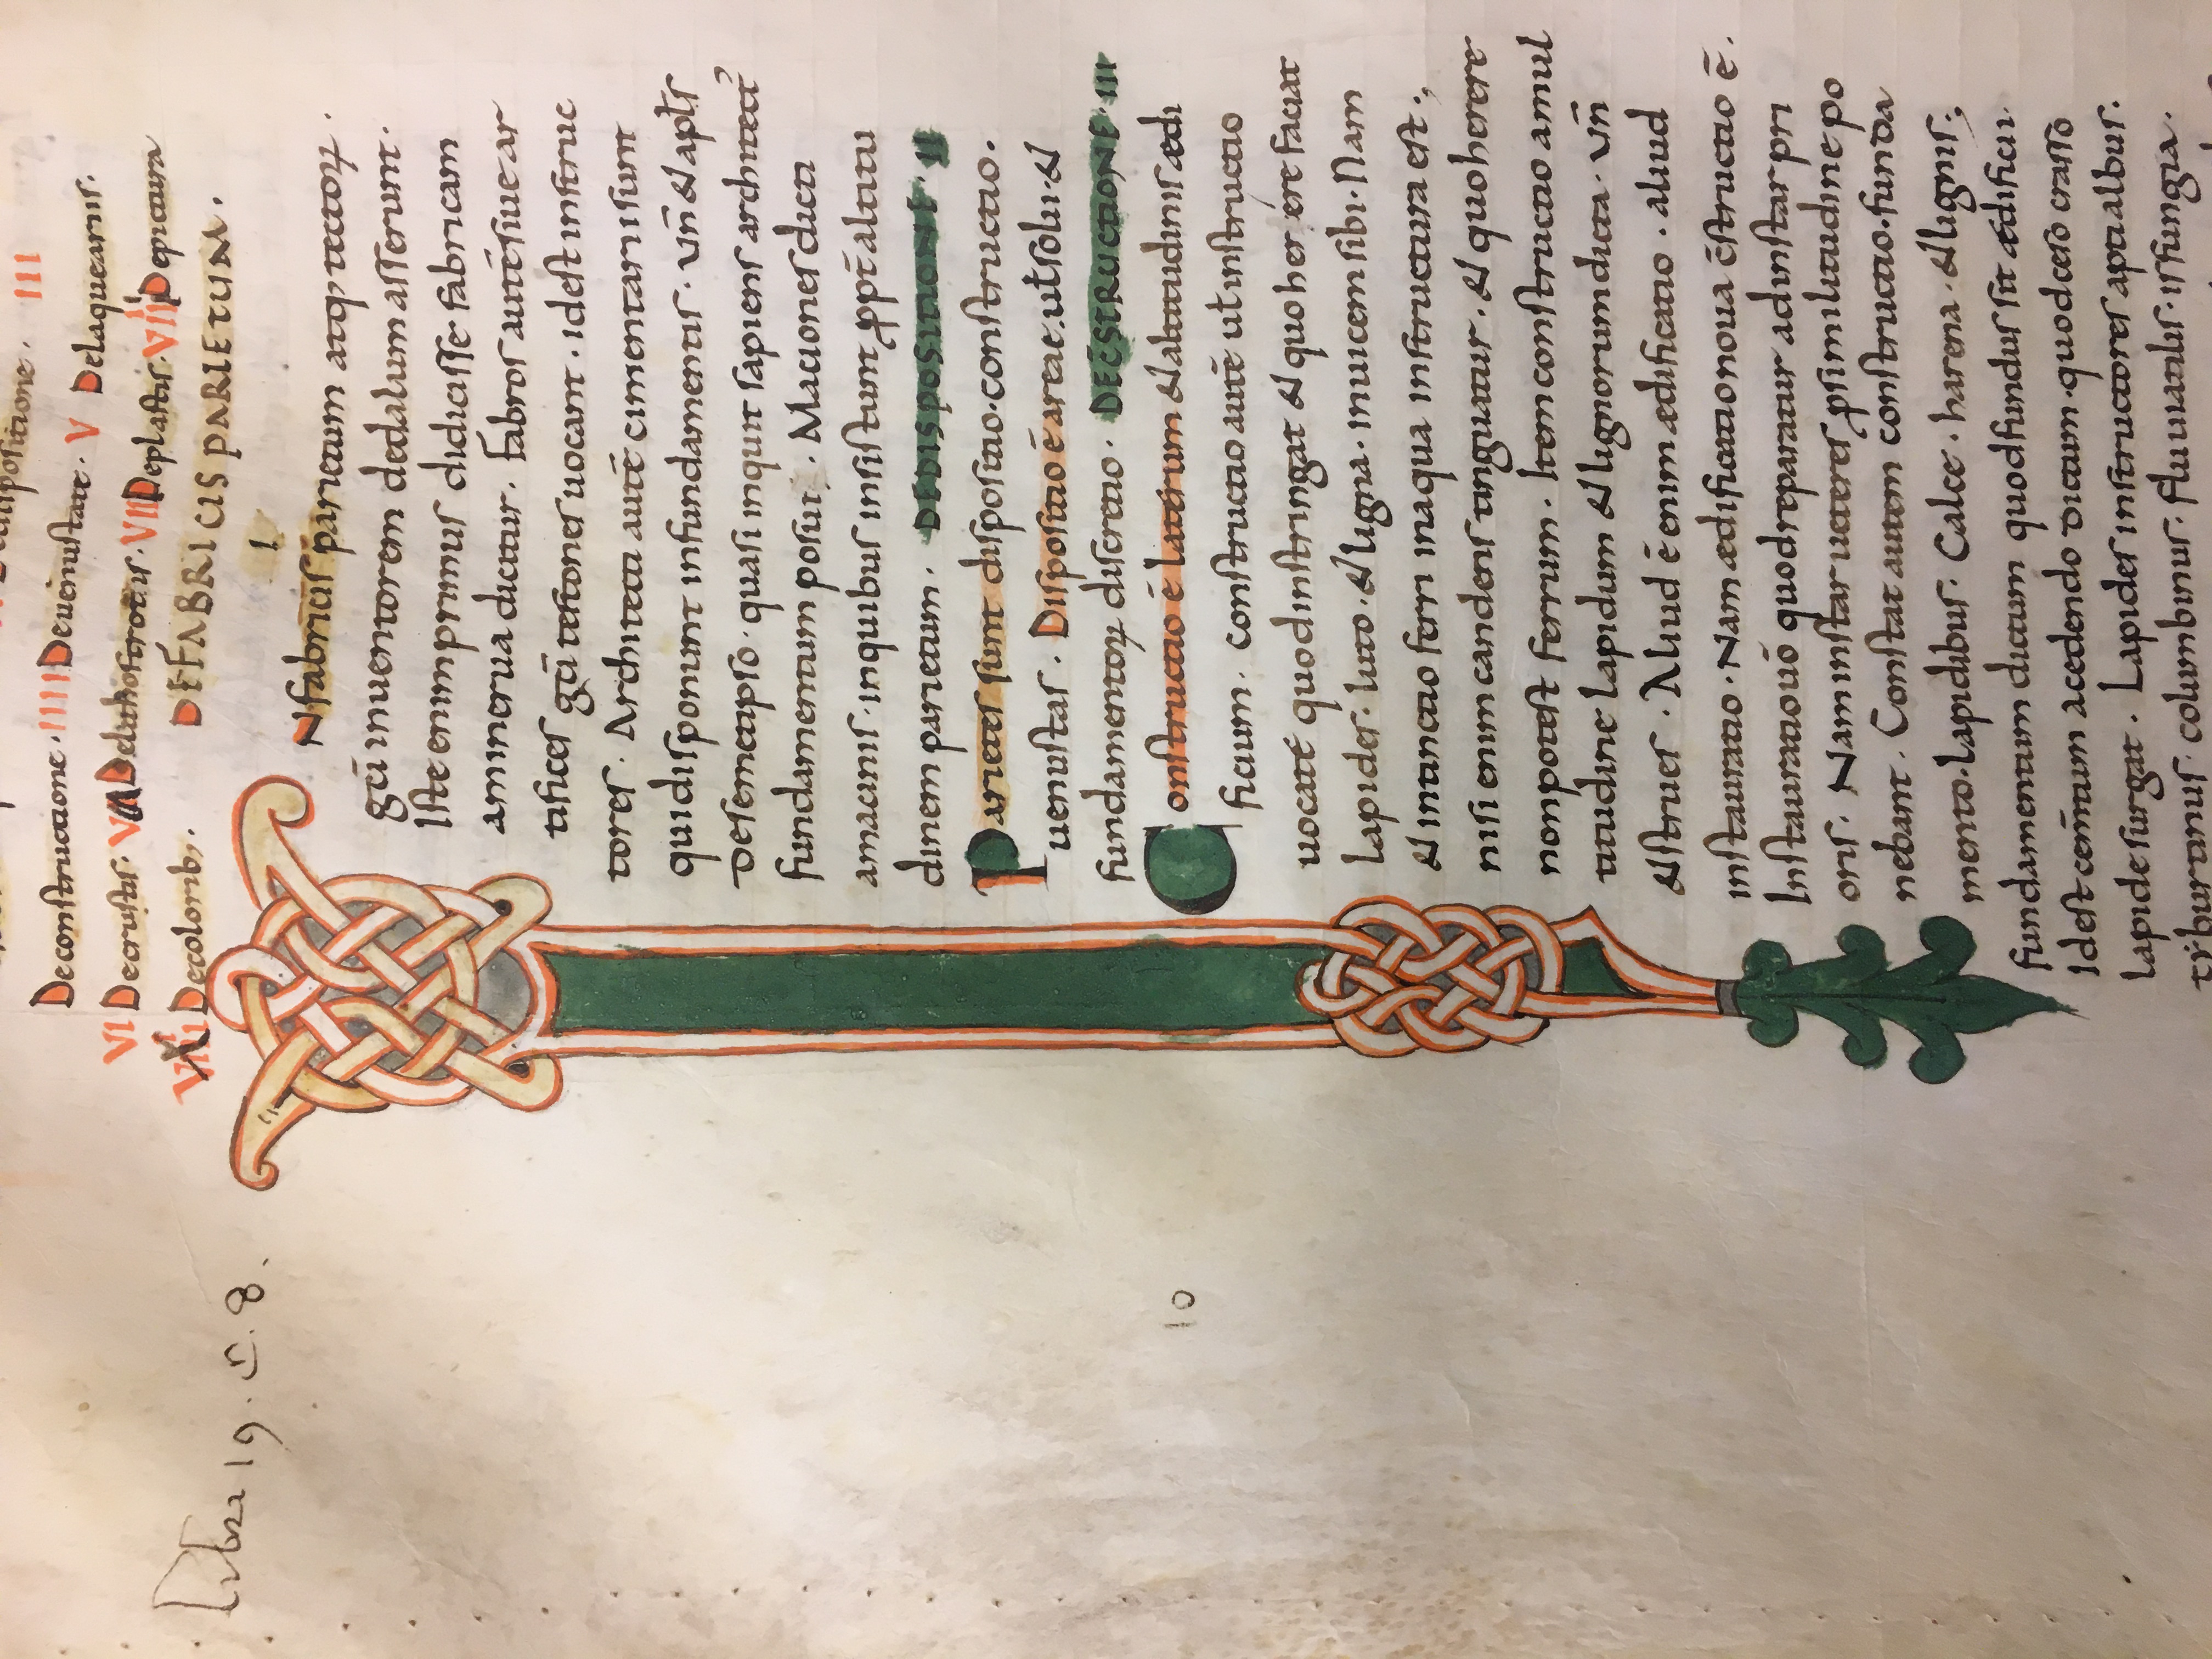 dispositione. III
Deconstructione. IIII Deuenustate. V Delaquearııs.
VI Decrustis. VII Delithostrotis. VIII Deplastis. VIIII Depictura
Decolorib;.
DE FABRICIS PARIETUM.
I
Liber 19. C. 8.
IN fabricis parietum atq; tectoꝝ.
greci inuentorem dedalum asserunt.
Iste enim primus didicisse fabricam
a minerua dicitur. fabros autē siue ar
tifices greci tectones uocant. id est instruc
tores. Architecti autē cimentarii sunt
qui disponunt in fundamentis. vn̄ & apl's
desemetipso. quasi inquit sapiens architect'
fundamentum posui. Maciones dicti
amacinis. inquibus insistunt ꝓpt̄ altitu
dinem parietum. DE DISPOSITIONE. II
Parietes sunt dispositio. constructio.
uenustas. Dispositio ē areae. ut soli. &
fundamentoꝝ discretio. DE CŌSTRUCTIONE. III
Constructio ē laterum & altitudinis ædi
ficium. Constructio autē ut instructio
uocatᷓ quod instringat & quo herere faciat
lapides. luto. & ligna. inuicem sibi. Nam
& intinctio ferri in aqua instructura est.;
nisi enim candens tinguatur. & quo herere
non potest ferrum. Item constructio a mul
titudine lapidum & lignorum dicta. vn̄
& strues. Aliud ē enim ædificatio. aliud
instauratio. Nam ædificatio noua cōstructio ē.
Instauratio uō quod reparatur ad instar pri
oris. Nam instar ueteres ꝓ similitudine po
nebant. Constat autem constructio. funda
mento. lapidibus. Calce. harena. & lignis.;
fundamentum dictum quod fundus sit ædificii.
Id est cem̄tum a cedendo dictum. quod cęso crasso
lapide surgat. Lapides in structores apti albus.
tyburtinus. columbinus. fluuiatilis. is fungia.
10